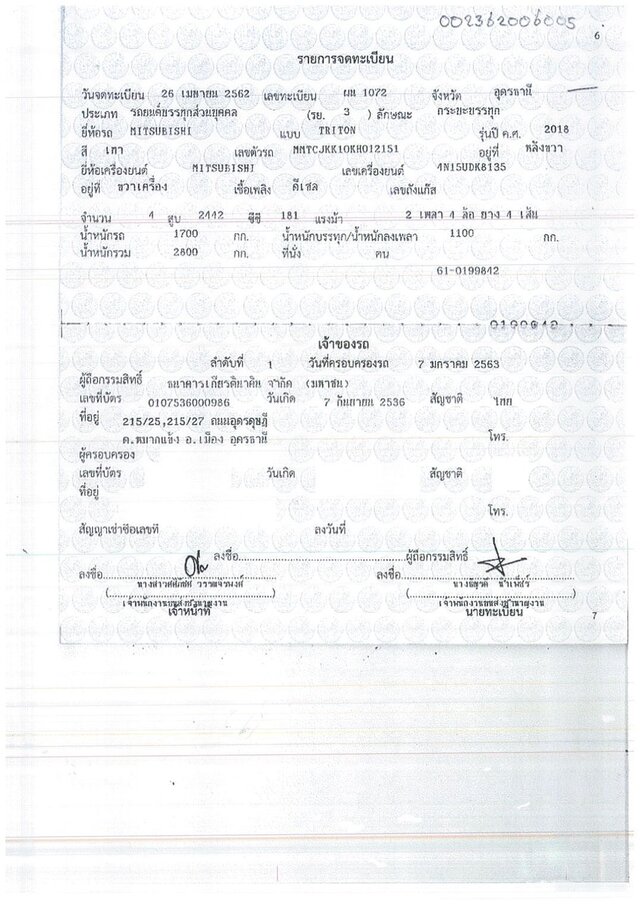 002362006005
6
รายการจดทะเบียน
วันจดทะเบียน 26 เมษายน 2562 เลขทะเบียน ผน 1072 จังหวัด อุดรธานี
ประเภท รถยนต์บรรทุกส่วนบุคคล (รย. 3 ) ลักษณะ กระบะบรรทุก
ยี่ห้อรถ MITSUBISHI แบบ TRITON รุ่นปี ค.ศ. 2018
สี เทา เลขตัวรถ MMTCJKK10KH012151 อยู่ที่ หลังขวา
ยี่ห้อเครื่องยนต์ MITSUBISHI เลขเครื่องยนต์ 4N15UDK8135
อยู่ที่ ขวาเครื่อง เชื้อเพลิง ดีเซล เลขถังแก๊ส
จำนวน 4 สูบ 2442 ซีซี 181 แรงม้า 2 เพลา 4 ล้อ ยาง 4 เส้น
น้ำหนักรถ 1700 กก. น้ำหนักบรรทุก/น้ำหนักลงเพลา 1100 กก.
น้ำหนักรวม 2800 กก. ที่นั่ง คน
61-0199842
0199842
เจ้าของรถ
ลำดับที่ 1 วันที่ครอบครองรถ 7 มกราคม 2563
ผู้ถือกรรมสิทธิ์ ธนาคารเกียรตินาคิน จำกัด (มหาชน)
เลขที่บัตร 0107536000986 วันเกิด 7 กันยายน 2536 สัญชาติ ไทย
ที่อยู่ 215/25,215/27 ถนนอุดรดุษฎี
ต.หมากแข้ง อ.เมือง อุดรธานี โทร.
ผู้ครอบครอง
เลขที่บัตร วันเกิด สัญชาติ
ที่อยู่
โทร.
สัญญาเช่าซื้อเลขที่ ลงวันที่
ลงชื่อ ผู้ถือกรรมสิทธิ์
ลงชื่อ ลงชื่อ
เจ้าพนักงานขนส่งชำนาญงาน เจ้าพนักงานขนส่งชำนาญงาน
เจ้าหน้าที่ นายทะเบียน
7